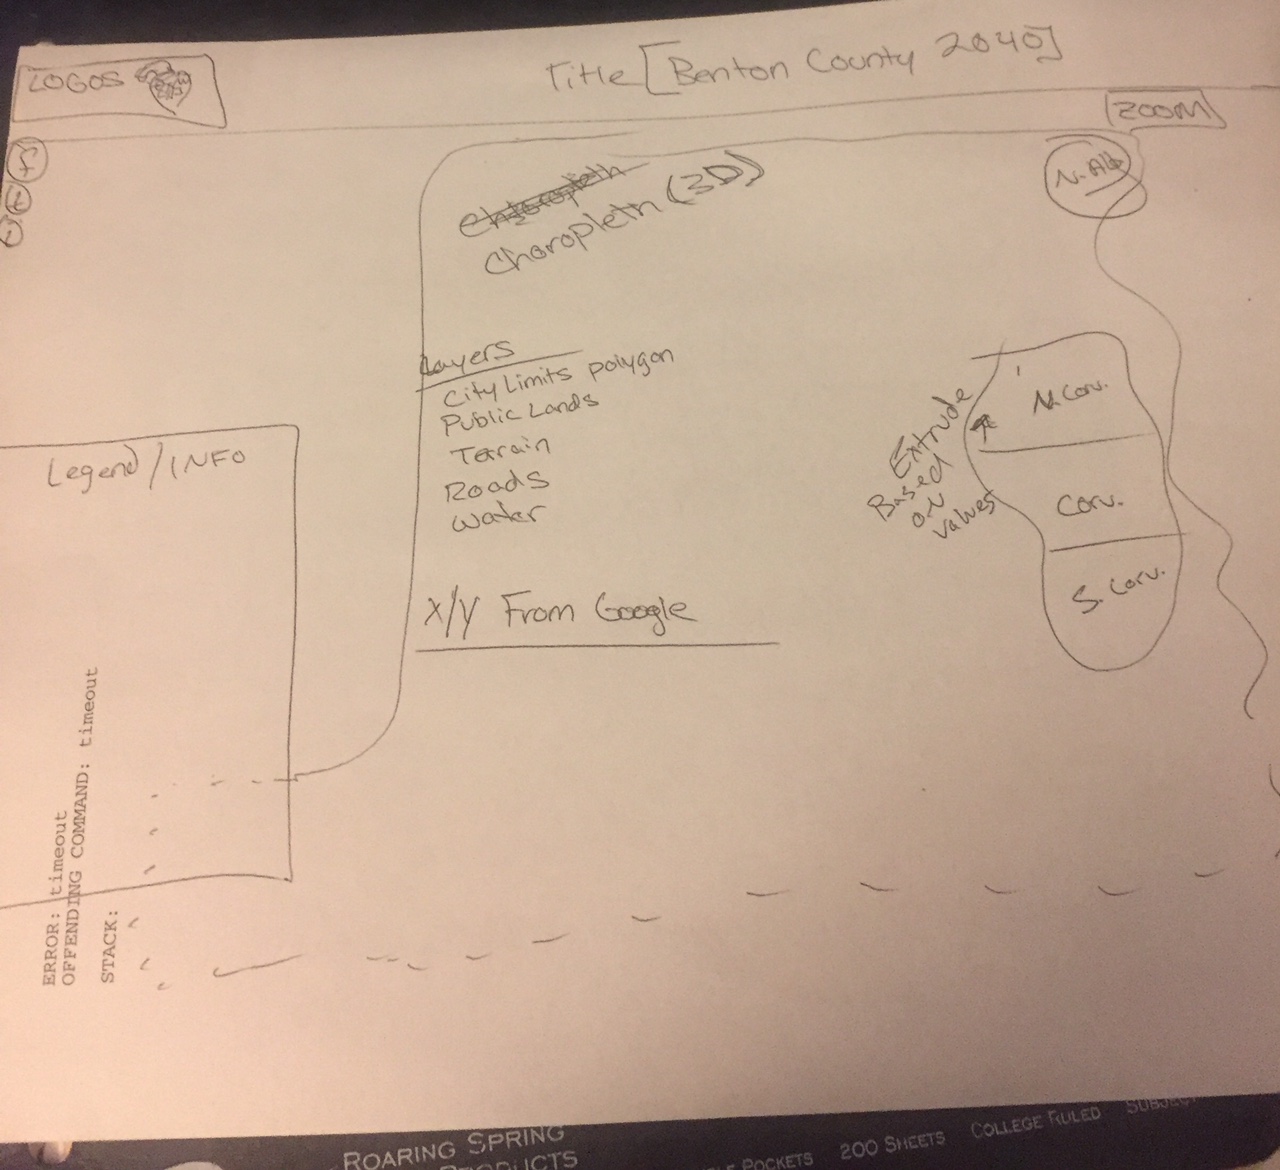 LOGOS
Title [Benton County 2040]
ZOOM
f
t
i
N. Alb
Choropleth (3D)
Layers
City Limits polygon
Public Lands
Terrain
Roads
Water
X/Y From Google
Extrude
Based
on
values
N. Corv.
Corv.
S. Corv.
Legend/INFO
ERROR: timeout
OFFENDING COMMAND: timeout
STACK:
ROARING SPRING
PRODUCTS
POCKETS
200 SHEETS
COLLEGE RULED
SUBJECT